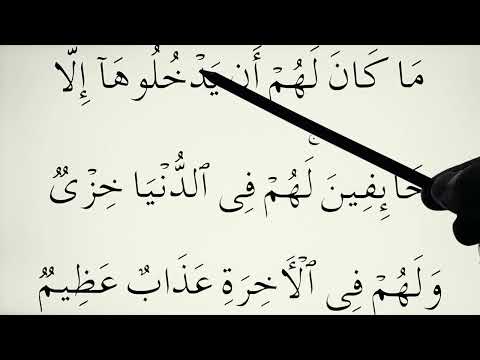 مَا كَانَ لَهُمۡ أَن يَدۡخُلُوهَآ إِلَّا
خَآئِفِينَۚ لَهُمۡ فِي ٱلدُّنۡيَا خِزۡيٞ
وَلَهُمۡ فِي ٱلۡأٓخِرَةِ عَذَابٌ عَظِيمٞ